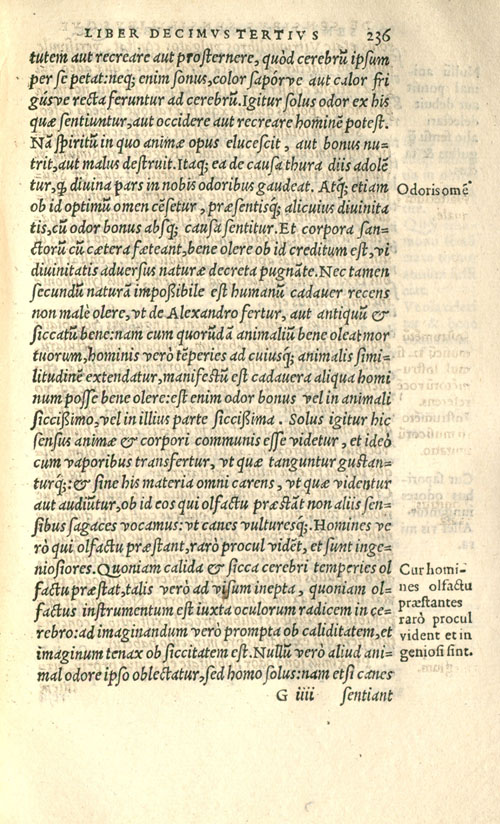 LIBER DECIMVS TERTIVS 236
tutem aut recreare aut prosternere, quòd cerebrũ ipsum
per se petat: neq; enim sonus, color sapórve aut calor fri
gúsve recta feruntur ad cerebrũ. Igitur solus odor ex his
quæ sentiuntur, aut occidere aut recreare hominẽ potest.
Nã spiritũ in quo animæ opus elucescit, aut bonus nu-
trit, aut malus destruit. Itaq; ea de causa thura diis adolẽ
tur, ꝙ diuina pars in nobis odoribus gaudeat. Atq; etiam
Odoris omẽ
ob id optimũ omen cẽsetur, præsentisq; alicuius diuinita
tis, cũ odor bonus absq; causa sentitur. Et corpora san-
ctorũ cũ cætera fœteant, bene olere ob id creditum est, vi
diuinitatis aduersus naturæ decreta pugnãte. Nec tamen
secundũ naturã impoßibile est humanũ cadauer recens
non malè olere, vt de Alexandro fertur, aut antiquũ &
siccatũ bene: nam cum quorũdã animaliũ bene oleat mor
tuorum, hominis verò tẽperies ad cuiusq; animalis simi-
litudinẽ extendatur, manifestũ est cadauera aliqua homi
num posse bene olere: est enim odor bonus vel in animali
siccißimo, vel in illius parte siccißima. Solus igitur hic
sensus animæ & corpori communis esse videtur, et ideò
cum vaporibus transfertur, vt quæ tanguntur gustan-
turq;: & sine his materia omni carens, vt quæ videntur
aut audiũtur, ob id eos qui olfactu præstãt non aliis sen-
sibus sagaces vocamus: vt canes vulturesq;. Homines ve
rò qui olfactu præstant, rarò procul vidẽt, et sunt inge-
niosiores. Quoniam calida & sicca cerebri temperies ol
factu præstat, talis verò ad visum inepta, quoniam ol-
factus instrumentum est iuxta oculorum radicem in ce-
rebro: ad imaginandum verò prompta ob caliditatem, et
imaginum tenax ob siccitatem est. Nullũ verò aliud ani-
mal odore ipso oblectatur, sed homo solus: nam etsi canes
Cur homi-
nes olfactu
præstantes
rarò procul
vident et in
geniosi sint.
G iiii sentiant